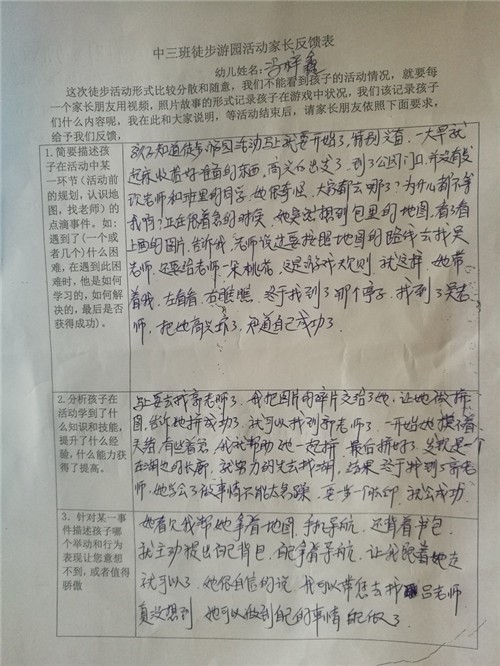 中三班徒步游园活动家长反馈表
幼儿姓名:
这次徒步活动形式比较分散和随意,我们不能看到孩子的活动情况,就要每
一个家长朋友用视频,照片故事的形式记录孩子在游戏中状况,我们该记录孩子
们什么内容呢,我在此和大家说明,等活动结束后,请家长朋友依照下面要求,
给予我们反馈,
1.简要描述孩
子在活动中某
一环节(活动前
的规划,认识地
图,找老师)的
点滴事件。如:
遇到了(一个或
者几个)什么困
难,在遇到此困
难时,他是如何
学习的,如何解
决的,最后是否
获得成功)。
孩子知道徒步游园活动马上就要开始了,特别兴奋,一大早就
起床收拾好准备的东西,高兴的出发了。到了公园门口,并没有发
现老师和班里的同学,她很奇怪,大家都去哪了?为什么都不等
我啊?正在很着急的时候,她突然想到包里的地图,看了看
上面的图片,告诉我,老师说过要按照地图的路线去找吴
老师,还要给老师一朵桃花,这是游戏规则,就这样,她带
着我,左看看,右瞧瞧,终于找到了那个亭子,找到了吴老
师,把她高兴坏了,知道自己成功了。
2.分析孩子在
活动学到了什
么知识和技能,
提升了什么经
验,什么能力获
得了提高。
马上要去找郭老师了,我把图片的碎片交给了她,让她做拼
图,告诉她拼成功了,就可以找到郭老师了。一开始她摸不着
头绪,有些着急,我就帮助她一起拼,最后拼好了,发现是一个
在湖边的长廊,就努力的先去找湖,结果终于找到了郭老
师,她学会了做事情不能太急躁,要一步一个脚印,就会成功
3.针对某一事
件描述孩子哪
个举动和行为
表现让您意想
不到,或者值得
骄傲
她看见我帮她拿着地图,手机导航,还背着书包,
就主动提出自己背包,自己拿着导航,让我跟着她走
就可以了,她很自信的说,我可以带您去找吕老师
真没想到,她可以做到自己的事情自己做了